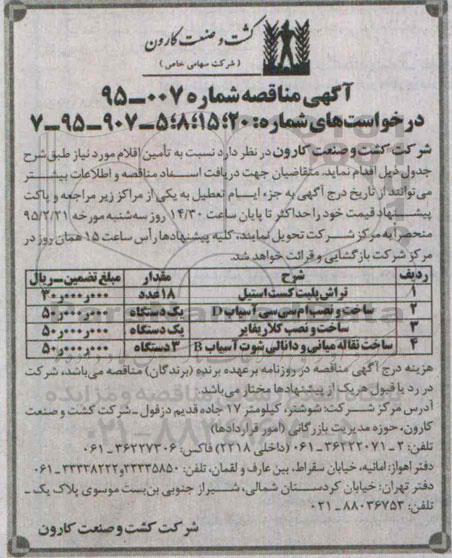 کشت و صنعت کارون
( شرکت سهامی خاص )
آگهی مناقصه شماره ۰۰۷-۹۵
درخواست‌های شماره: ۲۰؛۱۵؛۸؛۵-۹۰۷-۹۵-۷
شرکت کشت و صنعت کارون در نظر دارد نسبت به تأمین اقلام مورد نیاز طبق شرح
جدول ذیل اقدام نماید. متقاضیان جهت دریافت اسناد مناقصه و اطلاعات بیشتر
می‌توانند از تاریخ درج آگهی به جزء ایام تعطیل به یکی از مراکز زیر مراجعه و پاکت
پیشنهاد قیمت خود را حداکثر تا پایان ساعت ۱۴/۳۰ روز سه‌شنبه مورخه ۹۵/۲/۲۱
منحصراً به مرکز شرکت تحویل نمایند. کلیه پیشنهادها رأس ساعت ۱۵ همان روز در
مرکز شرکت بازگشایی و قرائت خواهد شد.
ردیف شرح مقدار مبلغ تضمین-ریال
۱ تراش پلیت کست استیل ۱۸ عدد ۳۰٫۰۰۰٫۰۰۰
۲ ساخت و نصب ام سی سی آسیاب D یک دستگاه ۵۰٫۰۰۰٫۰۰۰
۳ ساخت و نصب کلاریفایر یک دستگاه ۵۰٫۰۰۰٫۰۰۰
۴ ساخت نقاله میانی و دانالی شوت آسیاب B ۳ دستگاه ۵۰٫۰۰۰٫۰۰۰
هزینه درج آگهی مناقصه در روزنامه برعهده برنده (برندگان) مناقصه می‌باشد، شرکت
در رد یا قبول هر یک از پیشنهادها مختار می‌باشد.
آدرس مرکز شرکت: شوشتر، کیلومتر ۱۷ جاده قدیم دزفول - شرکت کشت و صنعت
کارون، حوزه مدیریت بازرگانی (امور قراردادها)
تلفن: ۲-۳۶۲۲۲۰۷۱-۰۶۱ (داخلی ۲۲۱۸) فاکس: ۳۶۲۲۷۳۰۶-۰۶۱
دفتر اهواز: امانیه، خیابان سقراط، بین عارف و لقمان، تلفن: ۳۳۳۳۵۸۵۰و۳۳۳۳۸۲۲۲-۰۶۱
دفتر تهران: خیابان کردستان شمالی، شیراز جنوبی بن‌بست موسوی پلاک یک-
تلفن: ۸۸۰۳۶۷۵۳-۰۲۱
شرکت کشت و صنعت کارون